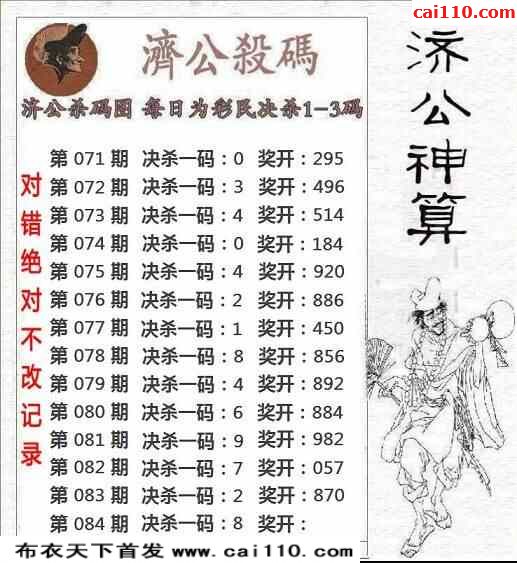 cai110.com
濟公殺碼
济公杀码图 每日为彩民决杀1-3码
济公神算
对错绝对不改记录
第 071 期 决杀一码：0 奖开：295
第 072 期 决杀一码：3 奖开：496
第 073 期 决杀一码：4 奖开：514
第 074 期 决杀一码：0 奖开：184
第 075 期 决杀一码：4 奖开：920
第 076 期 决杀一码：2 奖开：886
第 077 期 决杀一码：1 奖开：450
第 078 期 决杀一码：8 奖开：856
第 079 期 决杀一码：4 奖开：892
第 080 期 决杀一码：6 奖开：884
第 081 期 决杀一码：9 奖开：982
第 082 期 决杀一码：7 奖开：057
第 083 期 决杀一码：2 奖开：870
第 084 期 决杀一码：8 奖开：
布衣天下首发 www.cai110.com